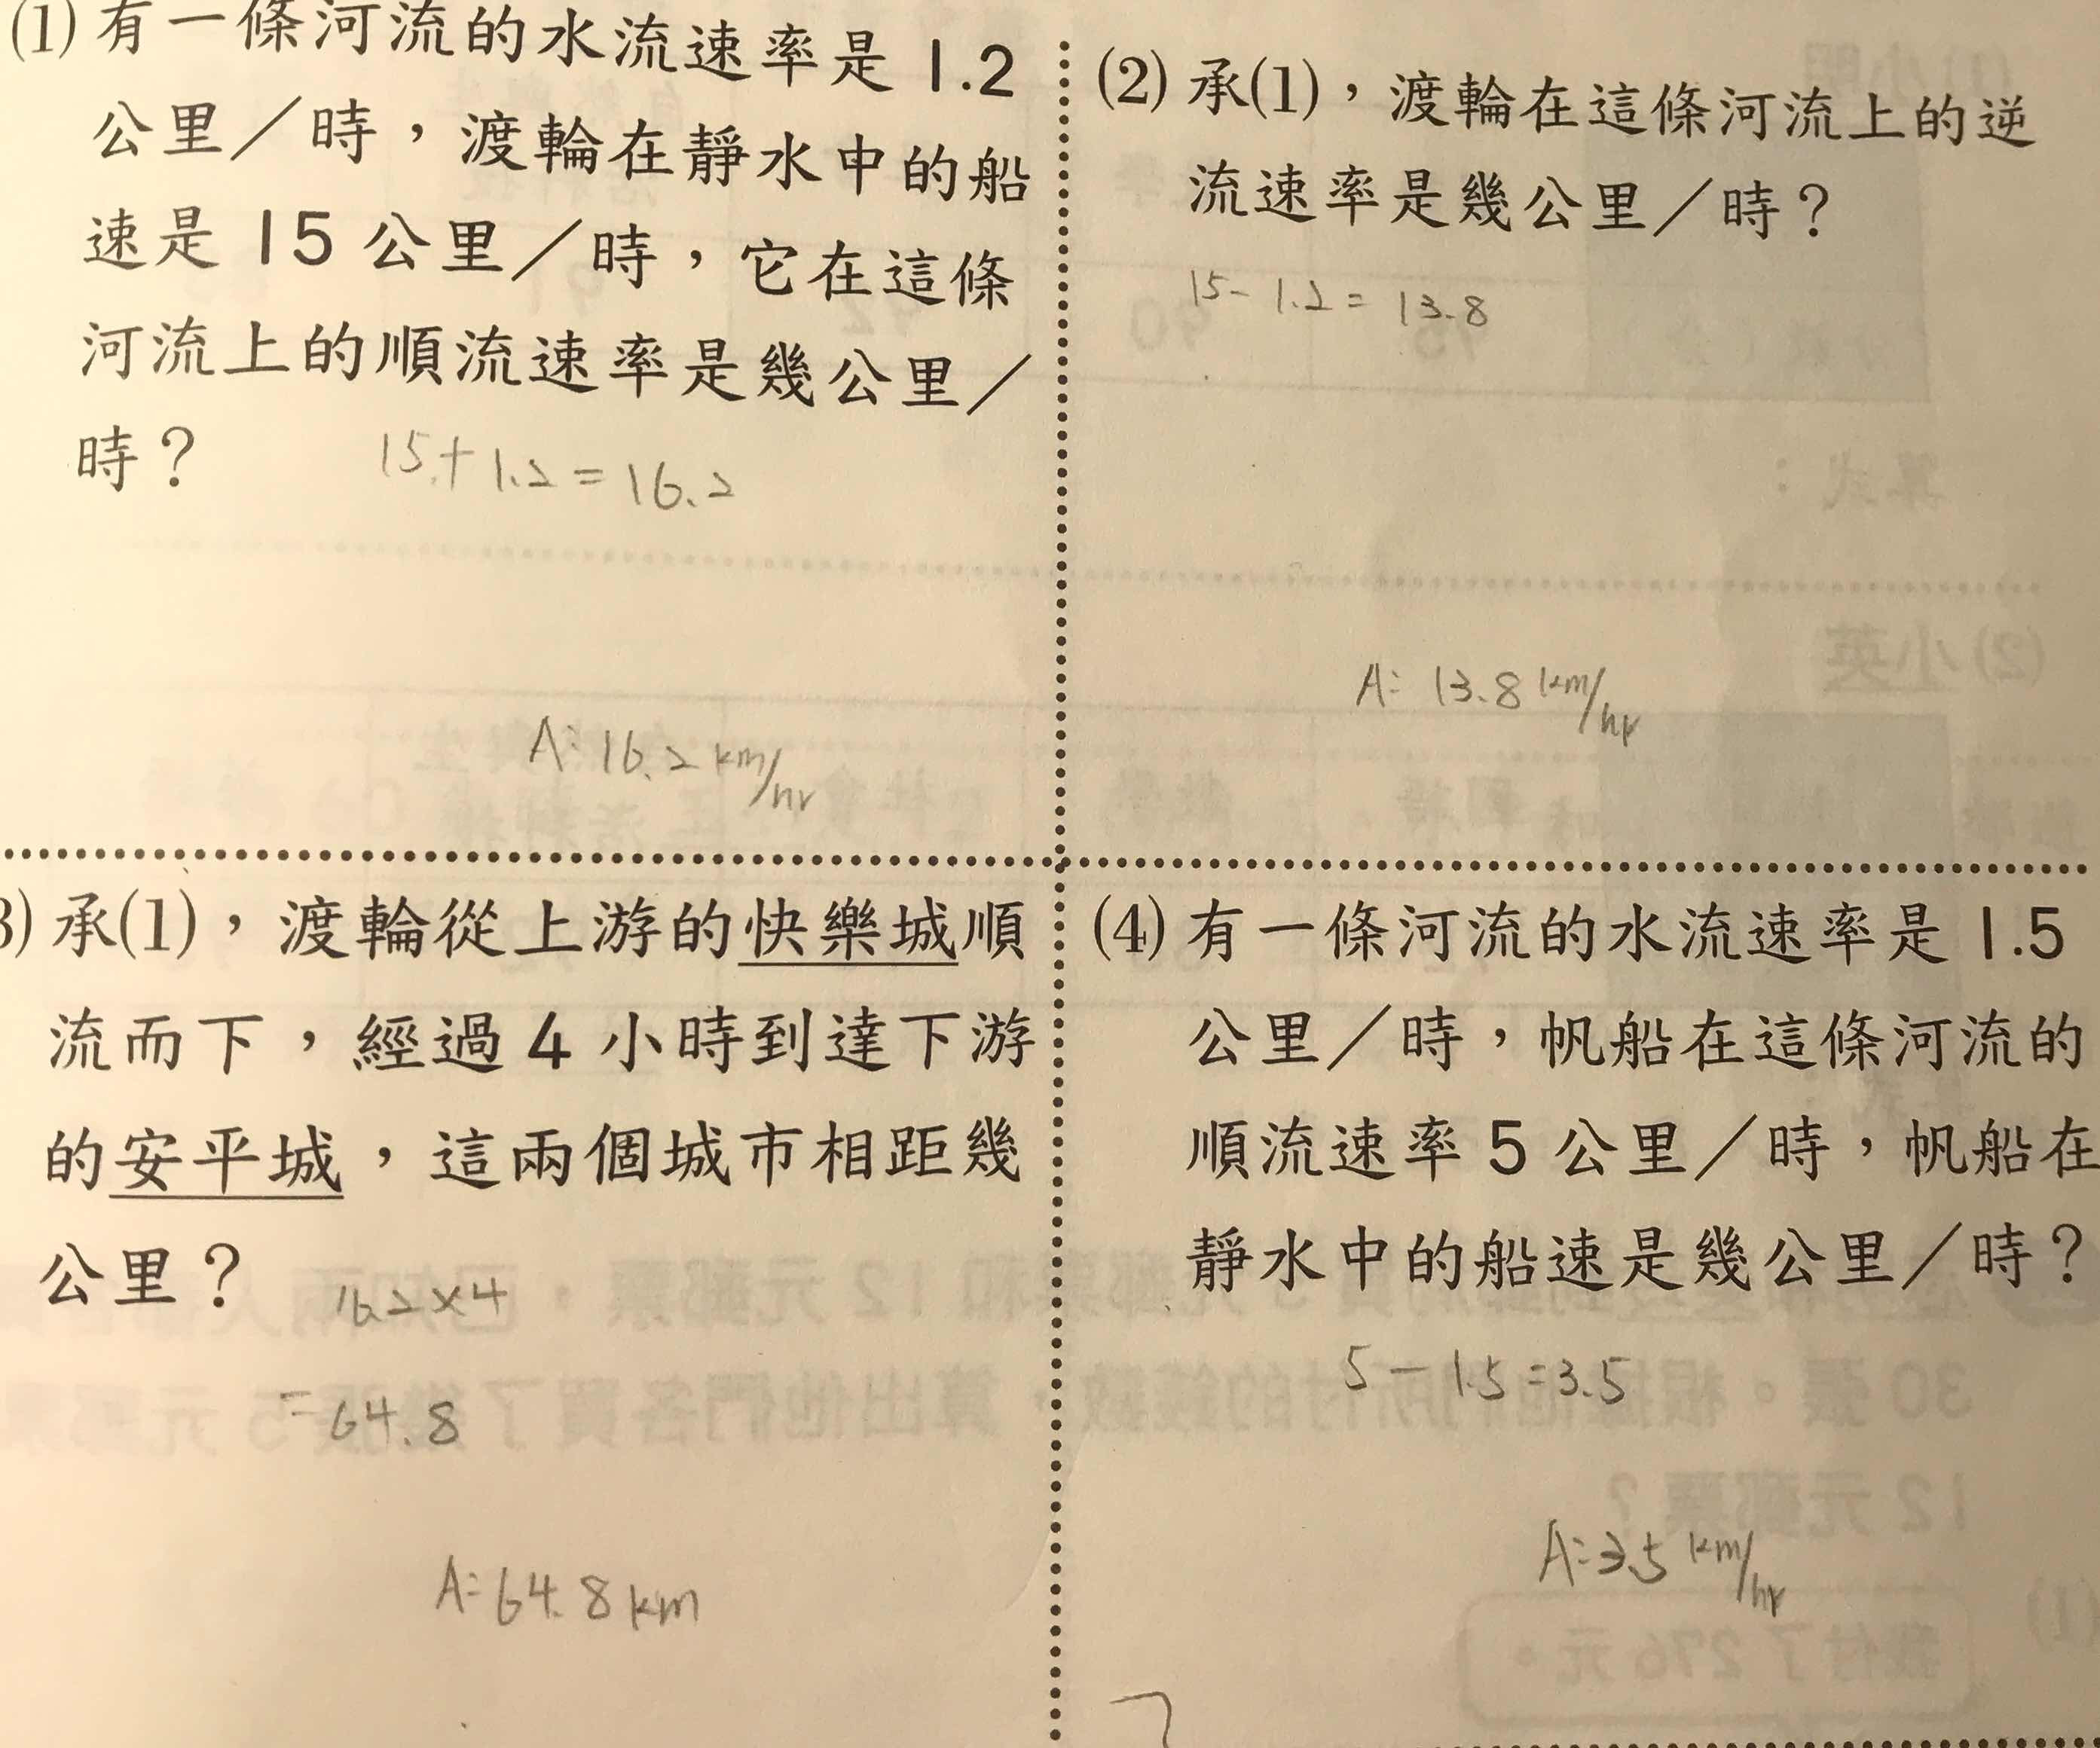 (1) 有一條河流的水流速率是 1.2
公里／時，渡輪在靜水中的船
速是 15 公里／時，它在這條
河流上的順流速率是幾公里／
時？
15+1.2=16.2
A:16.2 km/hr
(2) 承(1)，渡輪在這條河流上的逆
流速率是幾公里／時？
15-1.2=13.8
A:13.8 km/hr
3) 承(1)，渡輪從上游的快樂城順
流而下，經過 4 小時到達下游
的安平城，這兩個城市相距幾
公里？
16.2×4
=64.8
A:64.8 km
(4) 有一條河流的水流速率是 1.5
公里／時，帆船在這條河流的
順流速率 5 公里／時，帆船在
靜水中的船速是幾公里／時？
5-1.5=3.5
A:3.5 km/hr